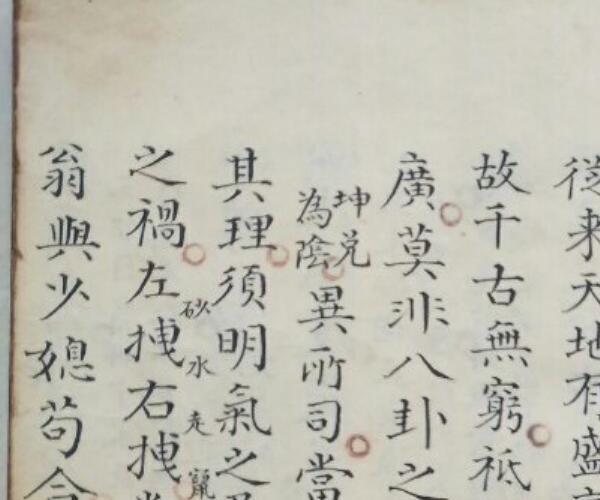 從来天地有盛
故千古無窮祗
廣莫非八卦之
坤兑
為陰
異所司當
其理須明氣之
砂水走竄
之禍左拽右拽
翁與少媳苟合